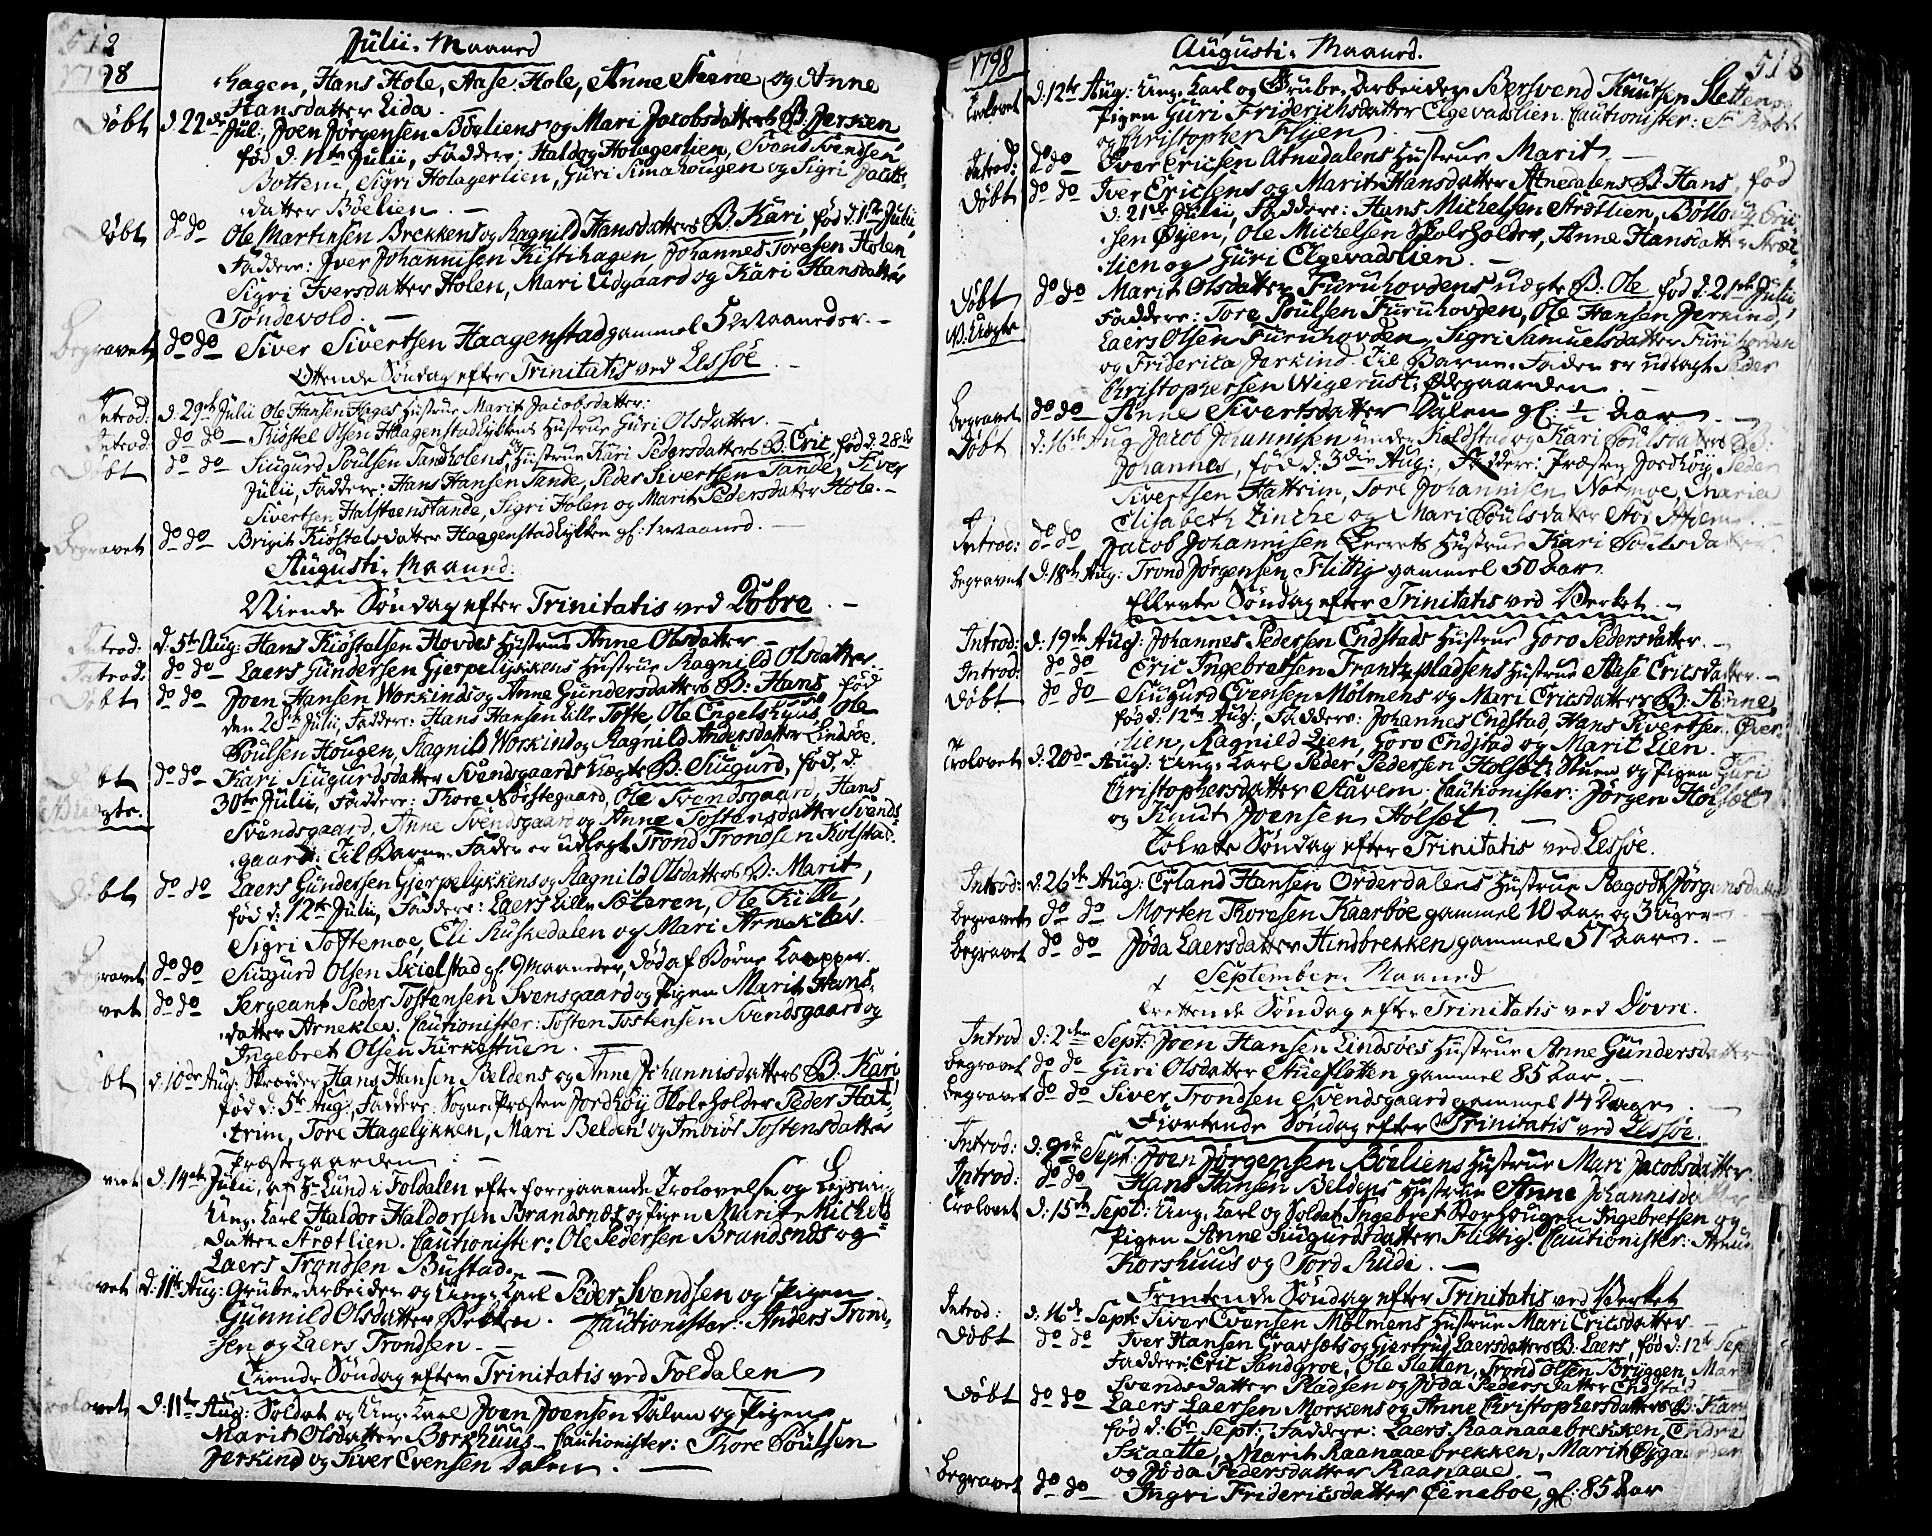 512
Julii-Maaned
1798
-hagen, Hans Hole, Aase Hole, Anne Steene og Anne
Hansdatter Lida.
Døbt d. 22de Jul: Joen Jørgensen Bøeliens og Mari Jacobsdatters B: Jersken,
fød d. 11te Julii, Faddere: Haldog Holagerlien, Svend Svendsen
Bottem, Sigri Holagerlien, Guri Simahougen og Sigri Jacobs-
datter Bøelien. —
Døbt do do Ole Martinsen Brekkens og Ragnild Hansdatters B. Kari, fød d. 11te Julii,
Faddere: Iver Johannisen Kistihagen, Johannes Toresen Holen,
Sigri Iversdatter Holen, Mari Udgaard og Kari Hansdatter
Tøndevold. —
Begravet do do Siver Sivertsen Haagenstad gammel 5 Maaneder. —
Ottende Søndag efter Trinitatis ved Lessøe. —
Introd: d. 29de Julii Ole Hansen Hages Hustrue Marit Jacobsdatter:
Introd: do do — Kiøstel Olsen Haagenstadlykkens Hustrue Guri Olsdatter. —
Døbt do do Siugurd Poulsen Sandholens og Hustrue Kari Pedersdatters B. Eric, fød d: 28de
Julii, Faddere: Hans Hansen Tande, Peder Sivertsen Tande, Siver
Sivertsen Halsteenstande, Sigri Holen og Marit Pedersdatter Hole. —
Begravet do do Brigit Kiøstelsdatter Haagenstadlykken gl: 1 Maaned. —
Augusti-Maaned.
Niende Søndag efter Trinitatis ved Dobre. —
Introd: d. 5te Aug: Hans Kiøstelsen Hovdes Hustrue Anne Olsdatter —
Introd: do do — Laers Gundersen Gjerpelykkens Hustrue Ragnild Olsdatter.
Døbt do do Joen Hansen Workinds og Anne Gundersdatters B: Hans, fød
den 28de Julii, Faddere: Hans Hansen Lille Tofte, Ole Engelshuus, Ole
Poulsen Hougen, Ragnild Workind og Ragnild Andersdatter Lindsøe.
Døbt do do Kari Siugurdsdatter Svendsgaards uægte B. Siugurd, fød d.
N: Uægte. 30te Julii, Faddere: Thore Nørstegaard, Ole Svendsgaard, Hans
Svendsgaard, Anne Svendsgaard og Anne Tostensdatter Svends-
gaard. Til Barne-Fader er udlagt Trond Trondsen Kolstad.
Døbt do do Laers Gundersen Gjerpelykkens og Ragnild Olsdatters B: Marit,
fød d: 12te Julii, Faddere: Laers Lille Sæteren, Ole Killi,
Sigri Toftemoe, Eli Ruskedalen og Mari Arneklev.
Begravet do do Siugurd Olsen Skielstad gl. 9 Maaneder, død af Børne Kopper.
vet do do Sergeant Peder Tostensen Svensgaard og Pigen Marit Hans-
datter Arneklev. Cautionister: Tosten Tostensen Svendsgaard og
Ingebret Olsen Kirkestuen. —
Døbt d: 10de Aug: Skræder Hans Hansen Beldens og Anne Johannisdatters B: Kari
fød d: 5te Aug:, Faddere: Sogne-Præsten Jordhøy, Skoleholder Peder Hat-
trim, Tore Hagelykken, Mari Belden og Imbiør Tostensdatter
Præstegaarden: —
viet d: 14de Julii, af Hr Lund i Foldalen efter foregaaende Trolovelse og Lysning
Ung-Karl Haldor Haldorsen Brandsnæs og Pigen Marit Michels-
datter Strætlien. Cautionister: Ole Pedersen Brandsnes og
Laers Trondsen Bustad. —
vet d: 11te Aug: Grube-arbeider og Ung-Karl Peder Svendsen og Pigen
Gunnild Olsdatter Bekken. Cautionister: Anders Trond-
sen og Laers Trondsen. —
Tiende Søndag efter Trinitatis ved Foldalen
Trolovet d: 11te Aug: Soldat og Ung-Karl Joen Joensen Dalen og Pigen
Marit Olsdatter Borkhuus. Cautionister: Thore Poulsen
Jerkind og Siver Evensen Dalen. —
1798
Augusti-Maaned.
513
Trolovet d: 12te Aug: Ung-Karl og Grube-Arbeider Bersvend Knutsen Sletten og
Pigen Guri Friderichsdatter Elgevadslien. Cautionister:
og Christopher Flyen —
Introd: do do Iver Ericsen Atnedalens Hustrue Marit. —
Døbt do do Iver Ericsens og Marit Hansdatter Atnedalens B: Hans, fød
d. 21de Julii, Faddere: Hans Michelsen Strætlien, Bøtlov Eric-
sen Øyen, Ole Michelsen Skoleholder, Anne Hansdatter Stræt-
lien og Guri Elgevadslien. —
Døbt do do Marit Olsdatter Furuhovdens uægte B: Ole fød d: 21de Julii,
N. Uægte Faddere: Tore Poulsen Furuhovden, Ole Hansen Jerkind,
Laers Olsen Furuhovden, Sigri Samuelsdatter Furuhovden
og Friderica Jerkind. Til Barne-Fader er udlagt Peder
Christophersen Wigerust-Ødegaarden —
Begravet do do Anne Sivertsdatter Dalen gl: ½ Aar —
Døbt d: 16de Aug Jacob Johannisen under Koldstad og Kari Poulsdatters B:
Johannes, fød d. 3die Aug:, Faddere: Præsten Jordhøy, Peder
Sivertsen Hattrim, Tore Johannisen Normoe, Maria
Elisabeth Lincke og Mari Poulsdatter
Introd: do do Jacob Johannisen Hustrue Kari Poulsdatter.
Begravet d: 18de Aug: Trond Jørgensen Flittig gammel 50 Aar.
Ellevte Søndag efter Trinitatis ved Verket. —
Introd: d: 19de Aug: Johannes Pedersen Endstads Hustrue Goro Pedersdatter. —
Introd: do do Eric Ingebretsen Frantzpladsens Hustrue Aase Ericsdatter. —
Døbt do do Siugurd Evensen Mølmens og Mari Ericsdatters B: Anne,
fød d: 12te Aug:, Faddere: Johannes Endstad, Hans Sivertsen Øver-
lien, Ragnild Lien, Goro Endstad og Marit Lien.
Trolovet d. 20de Aug: Ung-Karl Peder Pedersen Holsæt-Stuen og Pigen Guri
Christophersdatter Stavem. Cautionister: Jørgen Holsæt
og Knut Joensen Holsæt. —
Tolvte Søndag efter Trinitatis ved Lessøe.
Introd: d: 26de Aug: Erland Hansen Orderdalens Hustrue Ragodt Jørgensdatter
Begravet do do Morten Thoresen Kaarbøe gammel 10 Aar og 3 Uger —
Begravet do do Jøda Laersdatter Hindbrekken gammel 57 Aar. —
September-Maaned
Trettende Søndag efter Trinitatis ved Dovre.
Introd d: 2den Sept: Joen Hansen Lindsøes Hustrue Anne Gundersdatter
Begravet do do Guri Olsdatter Stuefløtten gammel 85 Aar. —
Begravet do do Siver Trondsen Svendsgaard gammel 14 Dage. —
Fiortende Søndag efter Trinitatis ved Lessøe.
Introd: d. 9de Sept: Joen Jørgensen Bøeliens Hustrue Mari Jacobsdatter
Introd: do do Hans Hansen Beldens Hustrue Anne Johannisdatter
Trolovet d: 15de Sept: Ung-Karl og Soldat Ingebret Storhougen Ingebretsen og
Pigen Anne Siugurdsdatter Flittig. Cautionister:
Korshuus og Tord Rudi. —
Femtende Søndag efter Trinitatis ved Verket
Introd: d: 16de Sept: Siver Evensen Mølmens Hustrue Mari Ericsdatter —
Døbt do do Iver Hansen Gravsæts og Gjertrud Laersdatters B: Laers, fød d: 12te Sept
Faddere: Eric Sandgroe, Ole Sletten, Trond Olsen Bryggen, Mari
Svendsdatter Pladsen og Jøda Pedersdatter Endstad
Døbt do do Laers Laersen Morkens og Anne Christophersdatters B: Kari
fød d: 6te Sept:, Faddere: Laers Raanaaebrekken, Endre
Skaatte, Marit Raanaaebrekken, Marit
og Jøda Pedersdatter Raanaae —
Begravet do do Ingri Fridericsdatter Enebøe, gl: 85 Aar